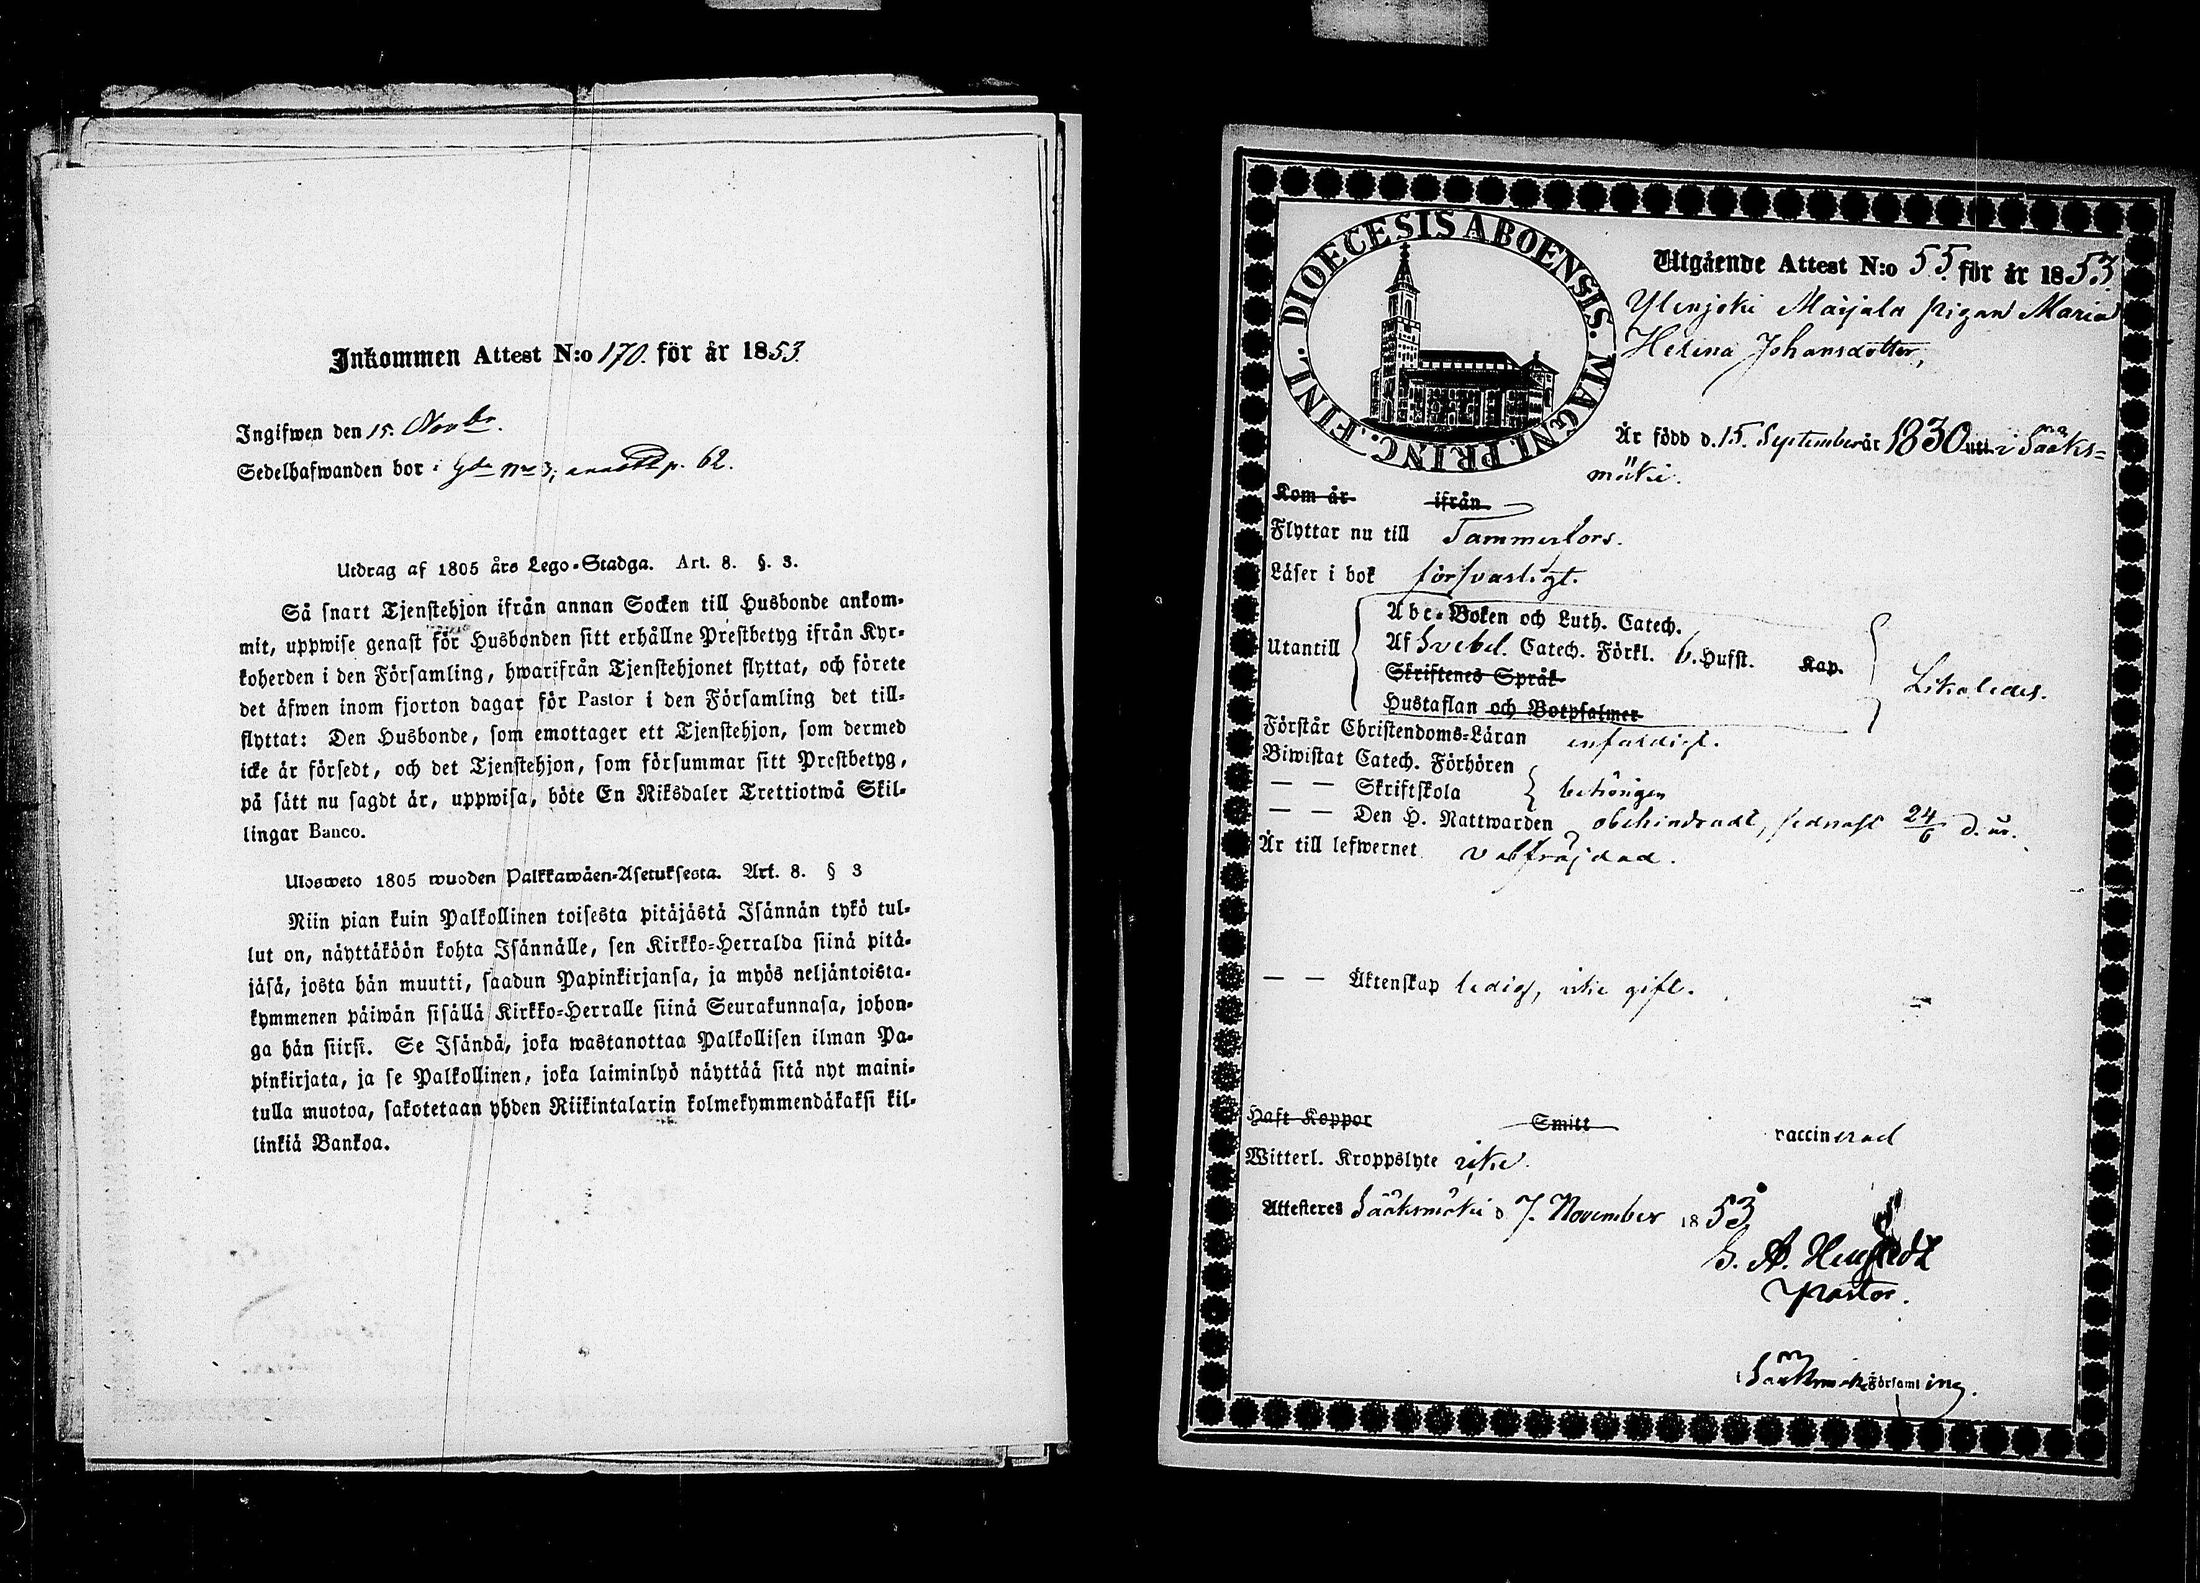 Inkommen Attest N:o 170. för år 1853
Ingifwen den 15. Novbr.
Sedelhafwanden bor i Gde No 3, p. 62.
Utdrag af 1805 års Lego-Stadga. Art. 8. §. 3.
Så snart Tjenstehjon ifrån annan Socken till Husbonde ankom-
mit, uppwise genast för Husbonden sitt erhållne Prestbetyg ifrån Kyr-
koherden i den Församling, hwarifrån Tjenstehjonet flyttat, och förete
det äfwen inom fjorton dagar för Pastor i den Församling det till-
flyttat: Den Husbonde, som emottager ett Tjenstehjon, som dermed
icke är försedt, och det Tjenstehjon, som försummar sitt Prestbetyg,
på sätt nu sagdt är, uppwisa, böte En Riksdaler Trettiotwå Skil-
lingar Banco.
Ulosweto 1805 wuoden Palkkawäen-Asetuksesta. Art. 8. § 3
Niin pian kuin Palkollinen toisesta pitäjästä Isännän tykö tul-
lut on, näyttäköön kohta Isännälle, sen Kirkko-Herralda siinä pitä-
jäsä, josta hän muutti, saadun Papinkirjansa, ja myös neljäntoista-
kymmenen päiwän sisällä Kirkko-Herralle siinä Seurakunnasa, johon-
ga hän siirsi. Se Isändä, joka wastanottaa Palkollisen ilman Pa-
pinkirjata, ja se Palkollinen, joka laiminlyö näyttää sitä nyt maini-
tulla muotoa, sakotetaan yhden Riikintalarin kolmekymmendäkaksi kil-
linkiä Bankoa.
DIOECESIS ABOENSIS. MAGNI PRINC. FINL.
Utgående Attest N:o 55 för år 1853
Ylenjoki Maijala pigan Maria
Helena Johansdotter,
Är född d. 15. September år 1830 uti i Sääks-
mäki.
Kom år ifrån
Flyttar nu till Tammerfors.
Läser i bok försvarligt.
Utantill
Abc-Boken och Luth. Catech.
Af Svebel. Catech. Förkl. 6. Hufst. Kap.
Skriftenes Språk
Hustaflan och Botpsalmer
Likaledes.
Förstår Christendoms-Läran enfaldigt.
Biwistat Catech. Förhören
— — Skriftskola behörigen
— — Den H. Nattwarden obehindradt, sednast 24/6 d. år.
Är till lefwernet välfräjdad.
— — Äktenskap ledig, icke gift.
Haft Koppor Smitt vaccinerad
Witterl. Kroppslyte icke.
Attesteras Sääksmäki d. 7. November 1853
Pastor.
i Sääksmäki Församling.